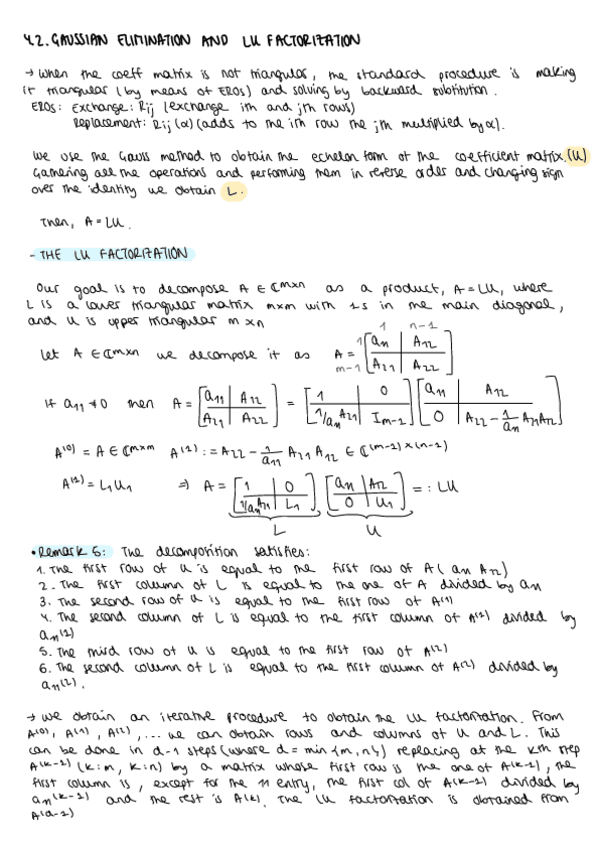 4.2. GAUSSIAN ELIMINATION AND LU FACTORIZATION
→ When the coeff matrix is not triangular, the standard procedure is making
it triangular (by means of EROs) and solving by backward substitution.
EROs: Exchange: Rij (exchange ith and jth rows)
Replacement: Rij(α) (adds to the ith row the jth multiplied by α).
We use the Gauss method to obtain the echelon form of the coefficient matrix.(U)
Gathering all the operations and performing them in reverse order and changing sign
over the identity we obtain L.
Then, A = LU.
- THE LU FACTORIZATION
Our goal is to decompose A ∈ ℂ^mxn as a product, A = LU, where
L is a lower triangular matrix mxm with 1s in the main diagonal,
and U is upper triangular m xn
1 n-1
Let A ∈ ℂ^mxn we decompose it as A = 1 [a11 | A12
m-1 A21 | A22]
If a11 ≠ 0 then A = [a11 | A12 ; A21 | A22] = [1 | 0 ; 1/a11 A21 | Im-1] [a11 | A12 ; 0 | A22 - 1/a11 A21 A12]
A^(0) = A ∈ ℂ^mxn A^(1) := A22 - 1/a11 A21 A12 ∈ ℂ^(m-1)x(n-1)
A^(1) = L1 U1 ⇒ A = [1 | 0 ; 1/a11 A21 | L1] [a11 | A12 ; 0 | U1] =: LU
L U
• Remark 6: The decomposition satisfies:
1. The first row of U is equal to the first row of A (a11 A12)
2. The first column of L is equal to the one of A divided by a11
3. The second row of U is equal to the first row of A^(1)
4. The second column of L is equal to the first column of A^(1) divided by
a11^(1)
5. The third row of U is equal to the first row of A^(2)
6. The second column of L is equal to the first column of A^(2) divided by
a11^(2).
→ We obtain an iterative procedure to obtain the LU factorization. From
A^(0), A^(1), A^(2), ... we can obtain rows and columns of U and L. This
can be done in d-1 steps (where d = min {m,n}) replacing at the kth step
A^(k-1) (k:m, k:n) by a matrix whose first row is the one of A^(k-1), the
first column is, except for the 11 entry, the first col of A^(k-1) divided by
a11^(k-1) and the rest is A^(k). The LU factorization is obtained from
A^(d-1)